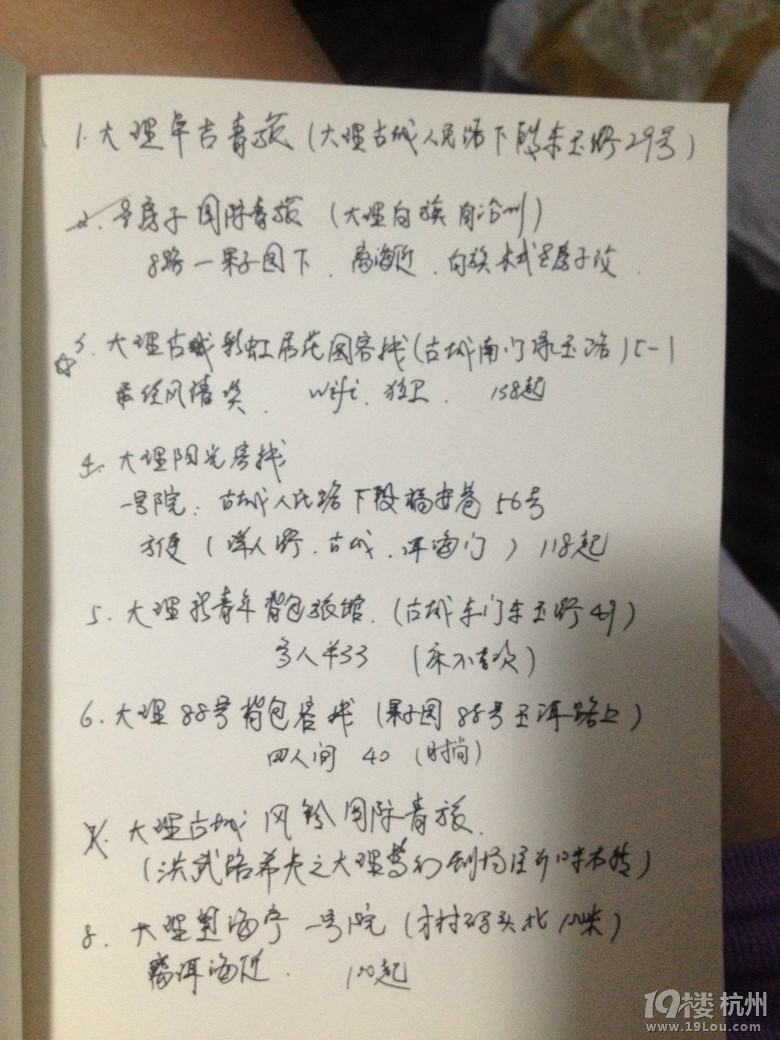 1. 大理年吉青旅 (大理古城人民路下段东玉路29号)
2. 号房子国际青旅 (大理白族自治州)
8路—果子园下. 离海近. 白族木式老房子改.
☆3. 大理古城彩虹居花园客栈 (古城南门绿玉路) 15-1
最佳风情奖. wifi. 独卫. 158起
4. 大理阳光客栈
一号院: 古城人民路下段福安巷56号
方便 (洋人街. 古城. 洱海门) 118起
5. 大理 青年背包旅馆. (古城东门东玉路49)
多人 ¥33 (床不喜欢)
6. 大理88号背包客栈 (果子园88号玉洱路上)
四人间 40 (时尚)
7. 大理古城风铃国际青旅.
(洪武路希夷之大理梦幻剧场
8. 大理望海亭一号院 (才村码头北100米)
离洱海近. 100起
19楼 杭州
www.19Lou.com